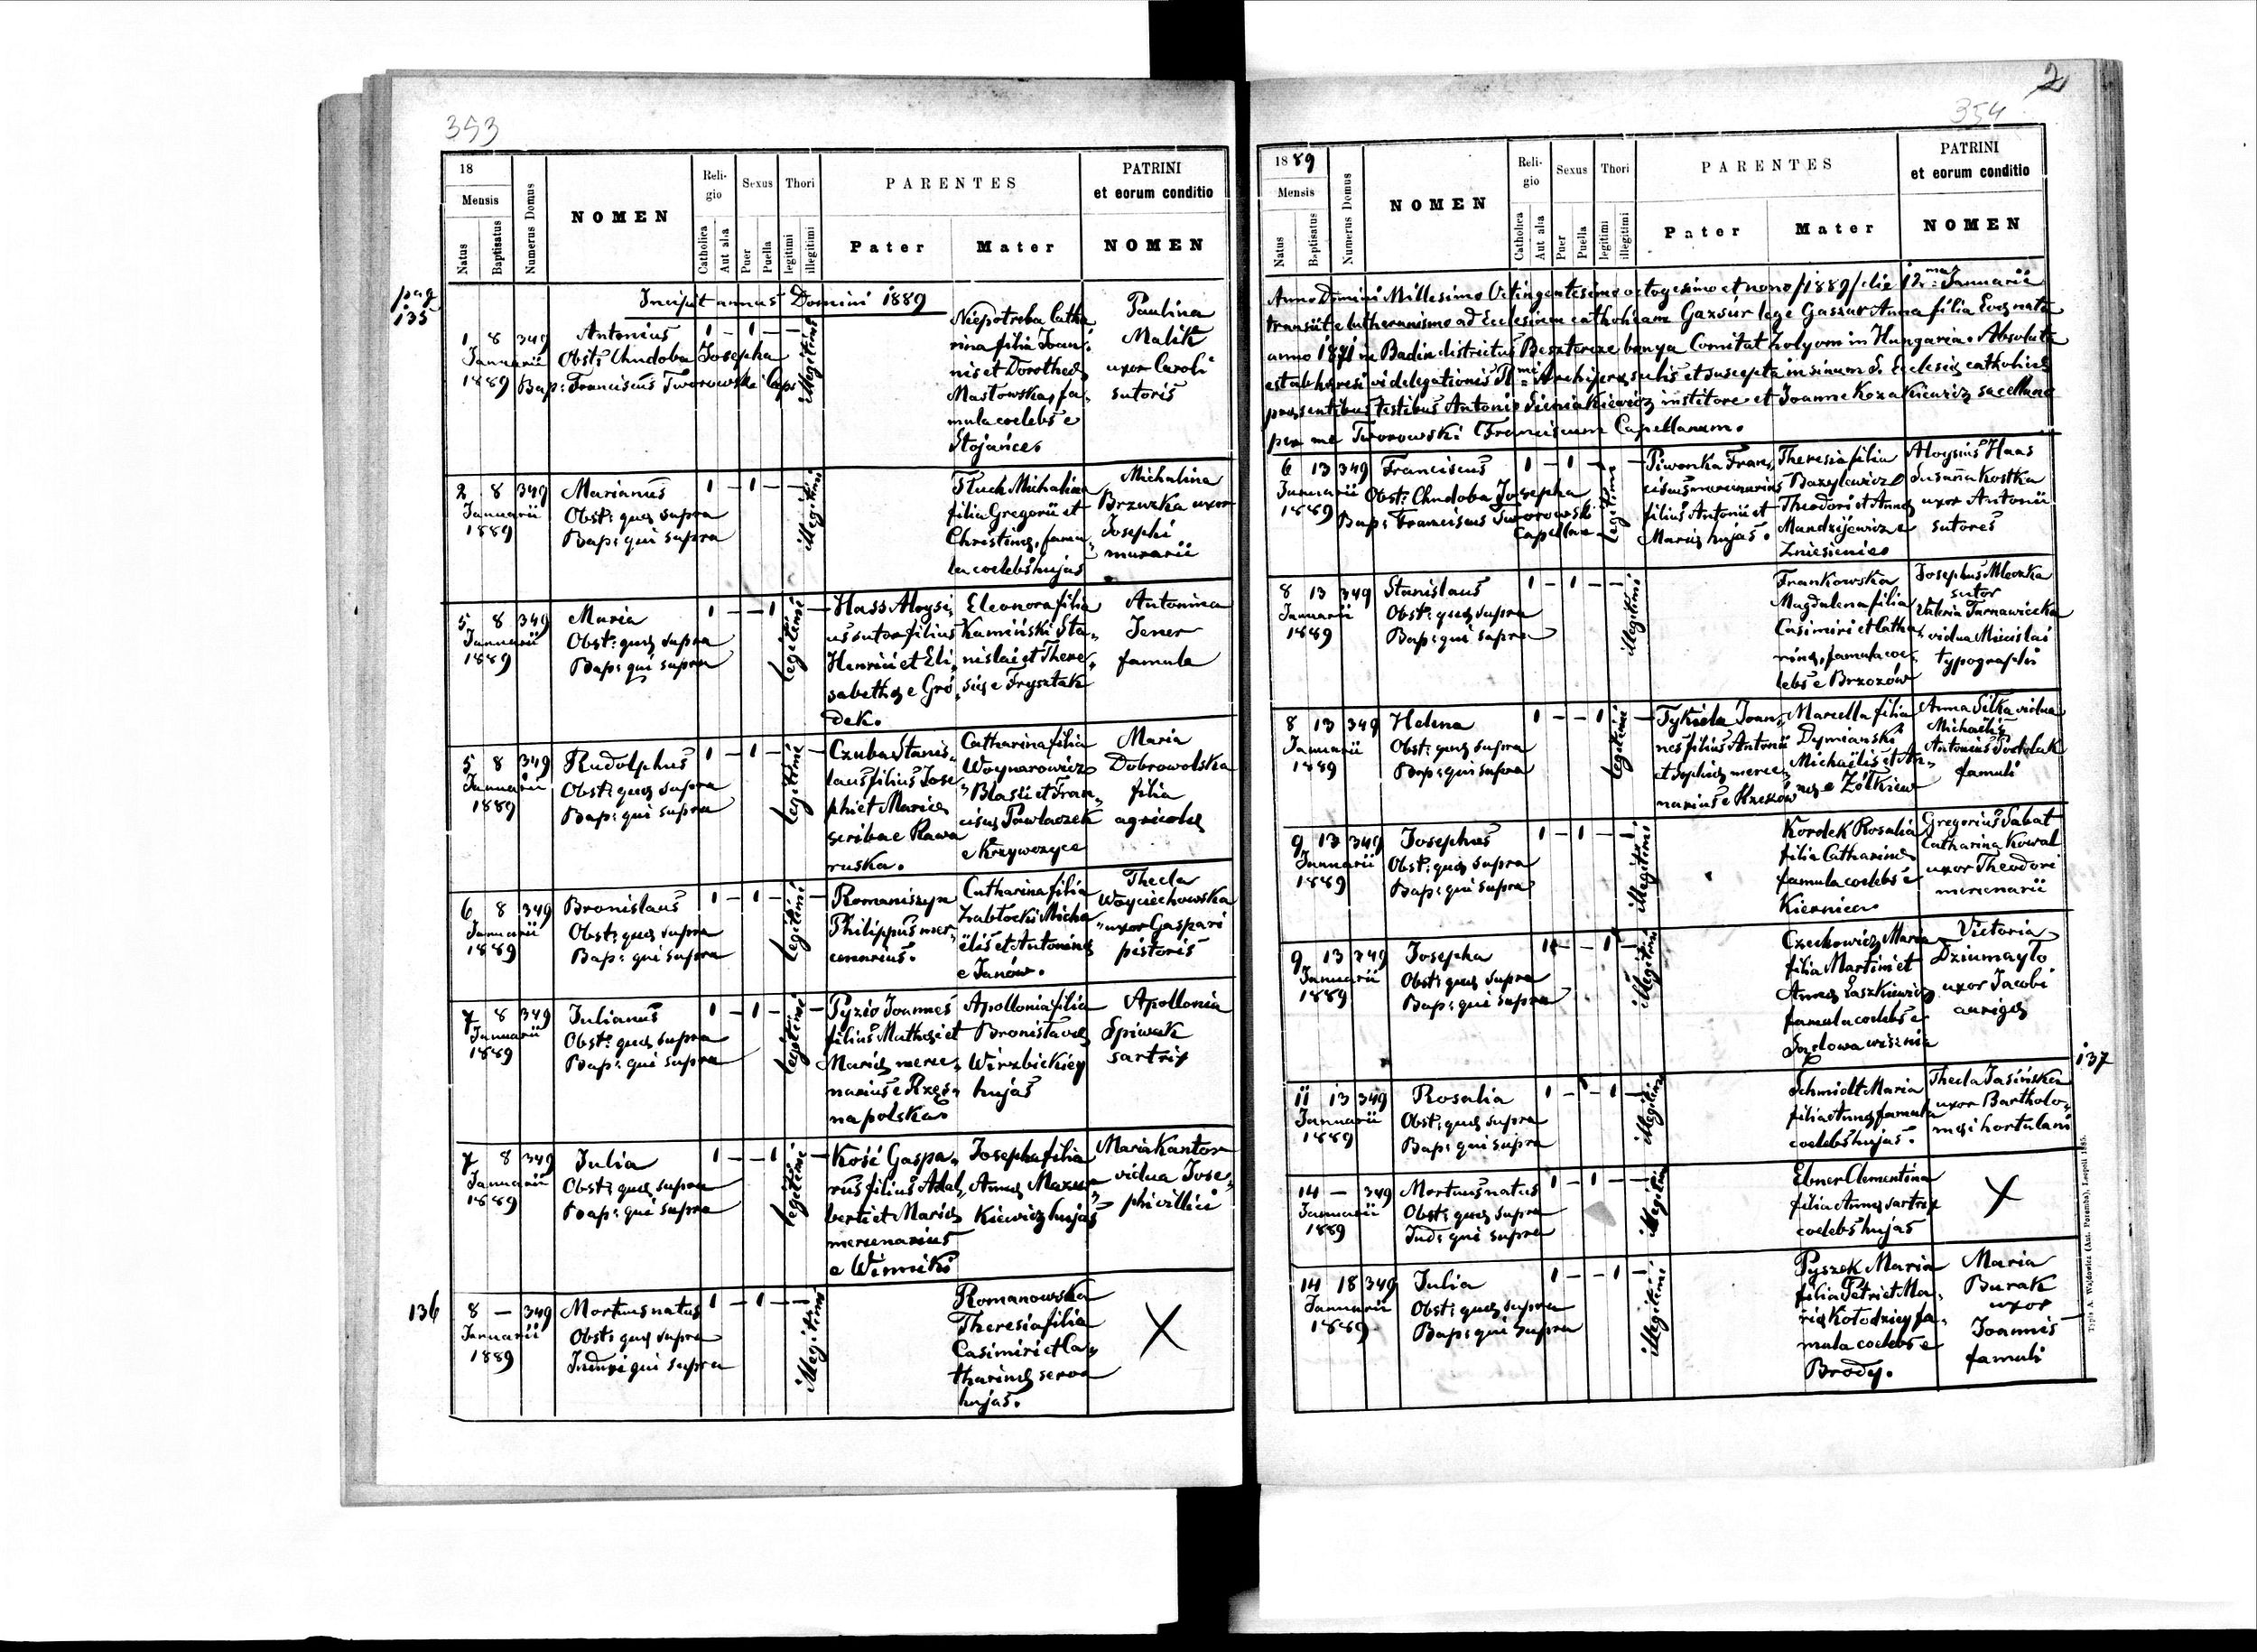 353
18
Mensis
Natus
Baptisatus
Numerus Domus
NOMEN
Religio
Catholica
Aut alia
Sexus
Puer
Puella
Thori
legitimi
illegitimi
PARENTES
Pater
Mater
PATRINI
et eorum conditio
NOMEN
pag
135
Incipit annus Domini 1889
1 8 349
Januarii
1889
Antonius
Obst: Chudoba Josepha
Bap: Franciscus Tworowski Cap:
1 – 1 – –
illegitimi
Niepotreba Catha
rina filia Joan,
nis et Dorotheæ
Masłowska, fa,
mula coelebs e
Stojańce.
Paulina
Malik
uxor Caroli
sutoris
2 8 349
Januarii
1889
Marianus
Obst: quæ supra
Bap: qui supra
1 – 1 – –
illegitimi
Tluch Michalina
filia Gregorii et
Christinæ, famu,
la coelebs hujas
Michalina
Brzuzka uxor
Josephi
murarii
5 8 349
Januarii
1889
Maria
Obst: quæ supra
Bap: qui supra
1 – – 1 –
legitimi
Hass Aloysi,
us sutor filius
Henrici et Eli,
sabethæ e Gró
dek.
Eleonora filia
Kamiński Sta,
nislai et There,
siæ e Frysztak
Antonina
Jener
famula
5 8 349
Januarii
1889
Rudolphus
Obst: quæ supra
Bap: qui supra
1 – 1 – –
legitimi
Czuba Stanis,
laus filius Jose
phi et Mariæ
scriba e Rawa
ruska.
Catharina filia
Woynarowicz
Blasii et Fran,
ciscæ Pawlaczek
e Krzywczyce
Maria
Dobrowolska
filia
agricolæ
6 8 349
Januarii
1889
Bronislaus
Obst: quæ supra
Bap: qui supra
1 – 1 – –
legitimi
Romaniszyn
Philippus mer,
cenarius.
Catharina filia
Zabłocki Micha
ëlis et Antoninæ
e Janów.
Thecla
Woyciechowska
uxor Gaspari
pistoris
7 8 349
Januarii
1889
Julianus
Obst: quæ supra
Bap: qui supra
1 – 1 – –
legitimi
Pyzio Joannes
filius Mathæi et
Mariæ merce,
narius e Rzęs,
na polska.
Apollonia filia
Bronislavæ
Wirzbickiéy
hujas
Apollonia
Spiwak
sartrix
7 8 349
Januarii
1889
Julia
Obst: quæ supra
Bap: qui supra
1 – – 1 –
legitimi
Kość Gaspa,
rus filius Adal,
berti et Mariæ
mercenarius
e Winniki
Josepha filia
Annæ Mazur
kiewicz hujas
Maria Kantor
vidua Jose,
phi villici
136
8 – 349
Januarii
1889
Mortuus natus
Obst: quæ supra
qui supra
1 – 1 – –
illegitimi
Romanowska
Theresia filia
Casimiri et Ca,
tharinæ serva
hujas.
2
354
1889
Mensis
Natus
Baptisatus
Numerus Domus
NOMEN
Religio
Catholica
Aut alia
Sexus
Puer
Puella
Thori
legitimi
illegitimi
PARENTES
Pater
Mater
PATRINI
et eorum conditio
NOMEN
Anno Domini Millesimo Octingentesimo octogesimo et nono /1889/ die 12ma Januarii
transiit e lutheranismo ad Ecclesiam catholicam Gazsúr lege Gaszur Anna filia Evæ nata
anno 1871 in Badin districtus Besztercze banya Comitat holyom in Hungaria. Absoluta
est ab hæresi vi delegationis Rmi Archipræsulis et suscepta in sinum S. Ecclesiæ catholicæ
præsentibus testibus Antonio Sieniakiewicz institore et Joanne Kozakiewicz sacellano
per me Tworowski Franciscum Capellanum.
6 13 349
Januarii
1889
Franciscus
Obst: Chudoba Josepha
Bap: Franciscus Tworowski
Capellan
1 – 1 – –
legitimi
Piwonka Fran,
ciscus mercenarius
filius Antonii et
Mariæ hujas.
Theresia filia
Bazylewicz
Theodori et Annæ
Mandzijewicz e
Zniesienie.
Aloysius Haas
Susanna Kostka
uxor Antonii
sutores
8 13 349
Januarii
1889
Stanislaus
Obst: quæ supra
Bap: qui supra
1 – 1 – –
illegitimi
Frankowska
Magdalena filia
Casimiri et Catha,
rinæ, famula coe,
lebs e Brzozów
Josephus Mleczka
sutor
Valeria Tarnawiecka
vidua Miecislai
typographi
8 13 349
Januarii
1889
Helena
Obst: quæ supra
Bap: qui supra
1 – – 1 –
legitimi
Tykiela Joan,
nes filius Antonii
et Sophiæ merce,
narius e Rzeszów
Marcella filia
Dymianski
Michaëlis et An,
næ e Żółkiew
Anna Silka vidua
Michaëlis
Antonius Postolak
famuli
9 13 349
Januarii
1889
Josephus
Obst: quæ supra
Bap: qui supra
1 – 1 – 1
illegitimi
Kordek Rosalia
filia Catharinæ
famula coelebs e
Kiernica.
Gregorius Sabat
Catharina Kowal
uxor Theodori
mercenarii
9 13 349
Januarii
1889
Josepha
Obst: quæ supra
Bap: qui supra
1 – – 1 –
illegitimi
Czechowicz Maria
filia Martini et
Annæ Laszkiewicz
famula coelebs e
Sądowa wisznia
Victoria
Dziumayło
uxor Jacobi
aurigæ
137
11 13 349
Januarii
1889
Rosalia
Obst: quæ supra
Bap: qui supra
1 – – 1 –
illegitimi
Schmidt Maria
filia Annæ famula
coelebs hujas.
Thecla Jasińska
uxor Bartholo,
mæi hortulani
14 – 349
Januarii
1889
Mortuus natus
Obst: quæ supra
Ind: qui supra
1 – 1 – –
illegitimi
Ebner Clementina
filia Annæ sartrix
coelebs hujas
14 18 349
Januarii
1889
Julia
Obst: quæ supra
Bap: qui supra
1 – – 1 –
illegitimi
Pyszek Maria
filia Petri et Ma,
riæ Kołodziey fa,
mula coelebs e
Brody.
Maria
Burak
uxor
Joannis
famuli
Typis A. Wajdowicz (Ant. Poremba), Leopoli 1885.